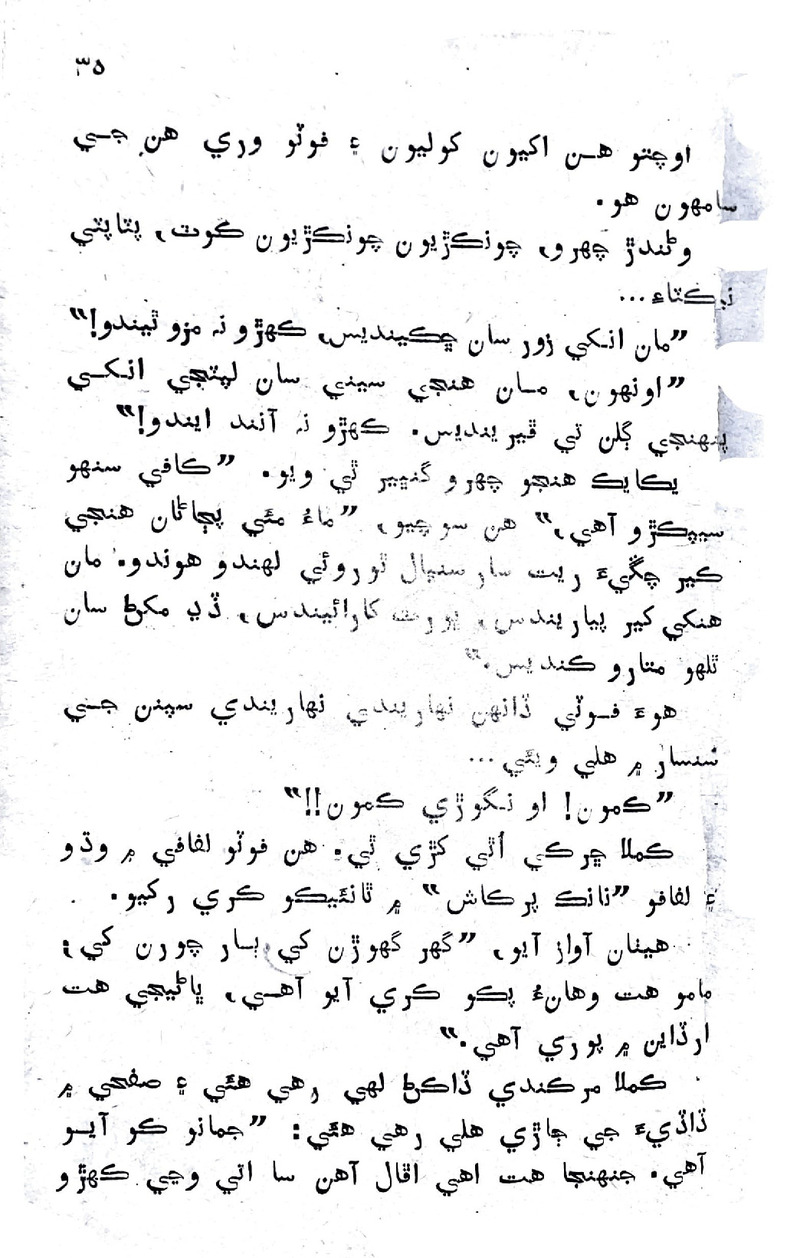 ٣٥
اوچتو هن اکيون کوليون ۽ فوٽو وري هن جي
سامهون هو.
وڻندڙ چهرو، چونڪڙيون چونڪڙيون ڪوٽ، پٽاپٽي
نيڪٽاءِ...
”مان انکي زور سان ڇڪينديس، ڪهڙو نہ مزو ٿيندو!“
”اونهون، مان هنجي سيني سان لپٽجي انکي
پنهنجي ڳلن تي ڦيرينديس. ڪهڙو نہ آنند ايندو!“
يڪايڪ هنجو چهرو گنڀير ٿي ويو. ”ڪافي سنهو
سيپڪڙو آهي،“ هن سوچيو، ”ماءُ مئي پڄاڻان هنجي
ڪير چڱيءَ ريت سار سنڀال ٿوروئي لهندو هوندو. مان
هنکي کير پياريندس، ... کارائيندس، ڏڌ مکڻ سان
ٿلهو متارو ڪنديس.“
هوءَ فوٽي ڏانهن نهاريندي نهاريندي سپنن جي
سنسار ۾ هلي ويئي...
”ڪمون! او نڳوڙي ڪمون!!“
ڪملا ڇرڪي اُٿي کڙي ٿي. هن فوٽو لفافي ۾ وڌو
۽ لفافو ”نانڪ پرڪاش“ ۾ ٿانئيڪو ڪري رکيو.
هيٺان آواز آيو، ”گهر گهوڙن کي ٻار چورن کي؛
مامو هت وهانءُ پڪو ڪري آيو آهي، ڀاڻيجي هت
ارڏاين ۾ پوري آهي.“
ڪملا مرڪندي ڏاڪڻ لهي رهي هئي ۽ صفحي ۾
ڏاڏيءَ جي ڄاڙي هلي رهي هئي: ”جمانو ڪو آيو
آهي. جنهنجا هت اهي افعال آهن سا اتي وڃي ڪهڙو